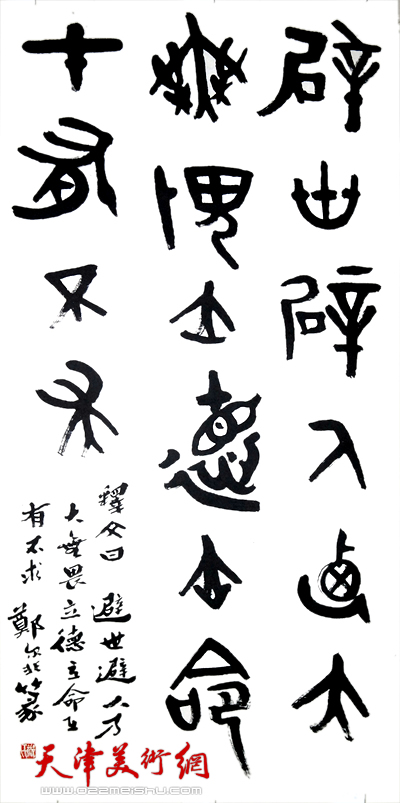 辟世辟人迺大
無愄立德立命
才有不求
釋文曰 避世避人乃
大無畏立德立命在
有不求 鄭尔非篆
天津美術網
www.022meishu.com